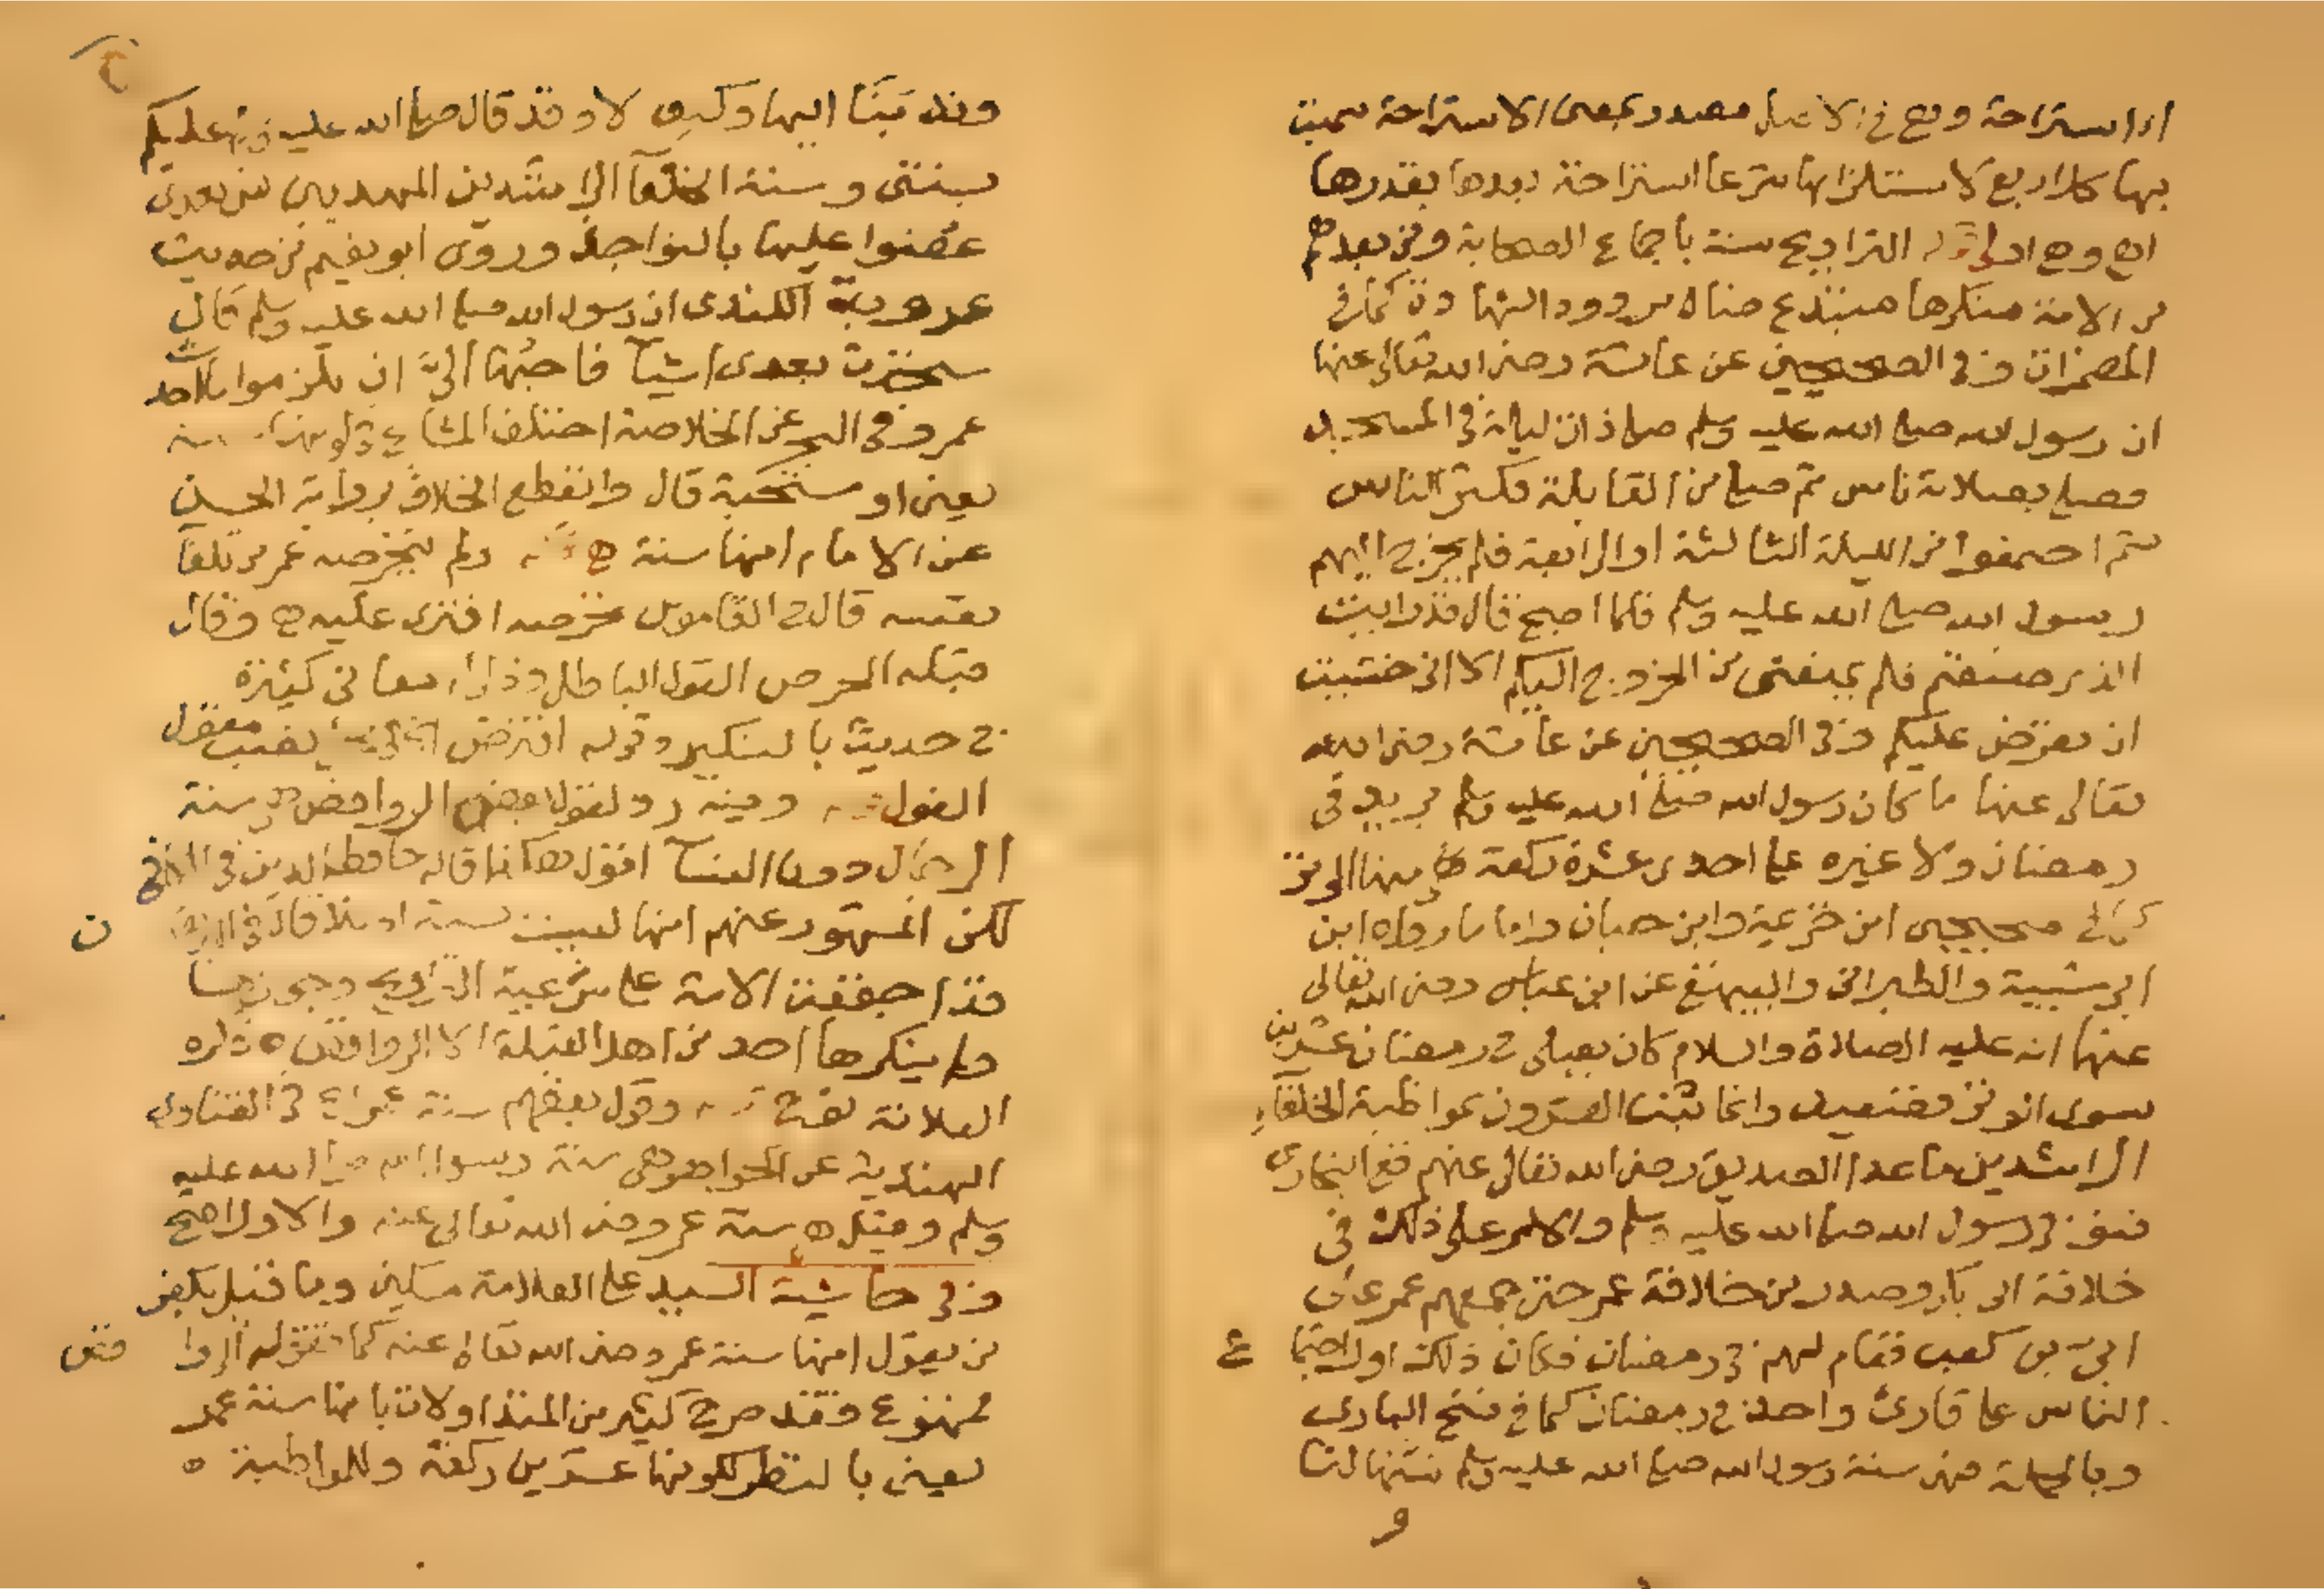 اذا استراحة وهي في الاصل مصدر بمعنى الاستراحة سميت
بها كل اربع لاستلزامها شرعا استراحة بعدها بقدرها
التراويح سنة باجماع الصحابة ومن بعدهم
من الامة منكرها مبتدع ضال مردود الشهادة كما في
المضمرات وفي الصحيحين عن عائشة رضى الله تعالى عنها
ان رسول الله صلى الله عليه وسلم صلى ذات ليلة في المسجد
فصلى بصلاته ناس ثم صلى من القابلة فكثر الناس
ثم اجتمعوا من الليلة الثالثة او الرابعة فلم يخرج اليهم
رسول الله صلى الله عليه وسلم فلما اصبح قال قد رايت
الذى صنعتم فلم يمنعنى من الخروج اليكم الا انى خشيت
ان تفرض عليكم وفى الصحيحين عن عائشة رضى الله
تعالى عنها ما كان رسول الله صلى الله عليه وسلم يزيد في
رمضان ولا غيره على احدى عشرة ركعة منها الوتر
كما في صحيحى ابن خزيمة وابن حبان واما ما رواه ابن
ابى شيبة والطبرانى والبيهقى عن ابن عباس رضى الله تعالى
عنهما انه عليه الصلاة والسلام كان يصلى في رمضان عشرين
سوى الوتر فضعيف وانما ثبت العشرون بمواظبة الخلفاء
الراشدين ما عدا الصديق رضى الله تعالى عنهم ففي البخارى
فتوفى رسول الله صلى الله عليه وسلم والامر على ذلك فى
خلافة ابى بكر وصدر من خلافة عمر حتى جمعهم عمر على
ابىّ بن كعب فقام لهم في رمضان فكان ذلك اول اجتما ع
الناس على قارئ واحد في رمضان كما في فتح البارى
وبالجملة فهى سنة رسول الله صلى الله عليه وسلم سنها لنا
و
وندبنا اليها وكيف لا وقد قال صلى الله عليه وسلم عليكم
بسنتى وسنة الخلفآ الراشدين المهديين من بعدى
عضوا عليها بالنواجذ وروى ابو نعيم من حديث
الكندى ان رسول الله صلى الله عليه وسلم قال
ستحدث بعدى اشيآ فاحبها الىّ ان تلزموا ما احدث
عمر وفى البحر عن الخلاصة اختلف المشايخ في كونها سنة
يعنى او مستحبة قال وانقطع الخلاف برواية الحسن
عن الامام انها سنة ولم يتخرصه عمر من تلقآ
نفسه قال في القاموس تخرصه افترى عليه وقال
قبله الخرص القول الباطل وذكر له معانى كثيرة
حديث بالتنكير وقوله افترض
القول وفيه رد لقول بعض الروافض سنة
الرجال دون النسآ اقول هكذا قاله حافظ الدين في الكافى
لكن المشهور عنهم انها ليست بسنة اصلا قال في البرها ن
قد اجتمعت الامة على شرعية التراويح وجوازها
ولم ينكرها احد من اهل القبلة الا الروافض ذكره
العلامة نوح وقول بعضهم سنة عمر في الفتاوى
الهندية عن الجواهر وهى سنة رسول الله صلى الله عليه
وسلم وقيل هى سنة عمر رضى الله تعالى عنه والاول اصح
وفى حاشية السيد على العلامة مسكين وما قيل يكفر
من يقول انها سنة عمر رضى الله تعالى عنه كما تقوله الروا فض
ممنوع فقد صرح كثير من المتداولات بانها سنة عمر
يعنى بالنظر لكونها عشرين ركعة وللمواظبة